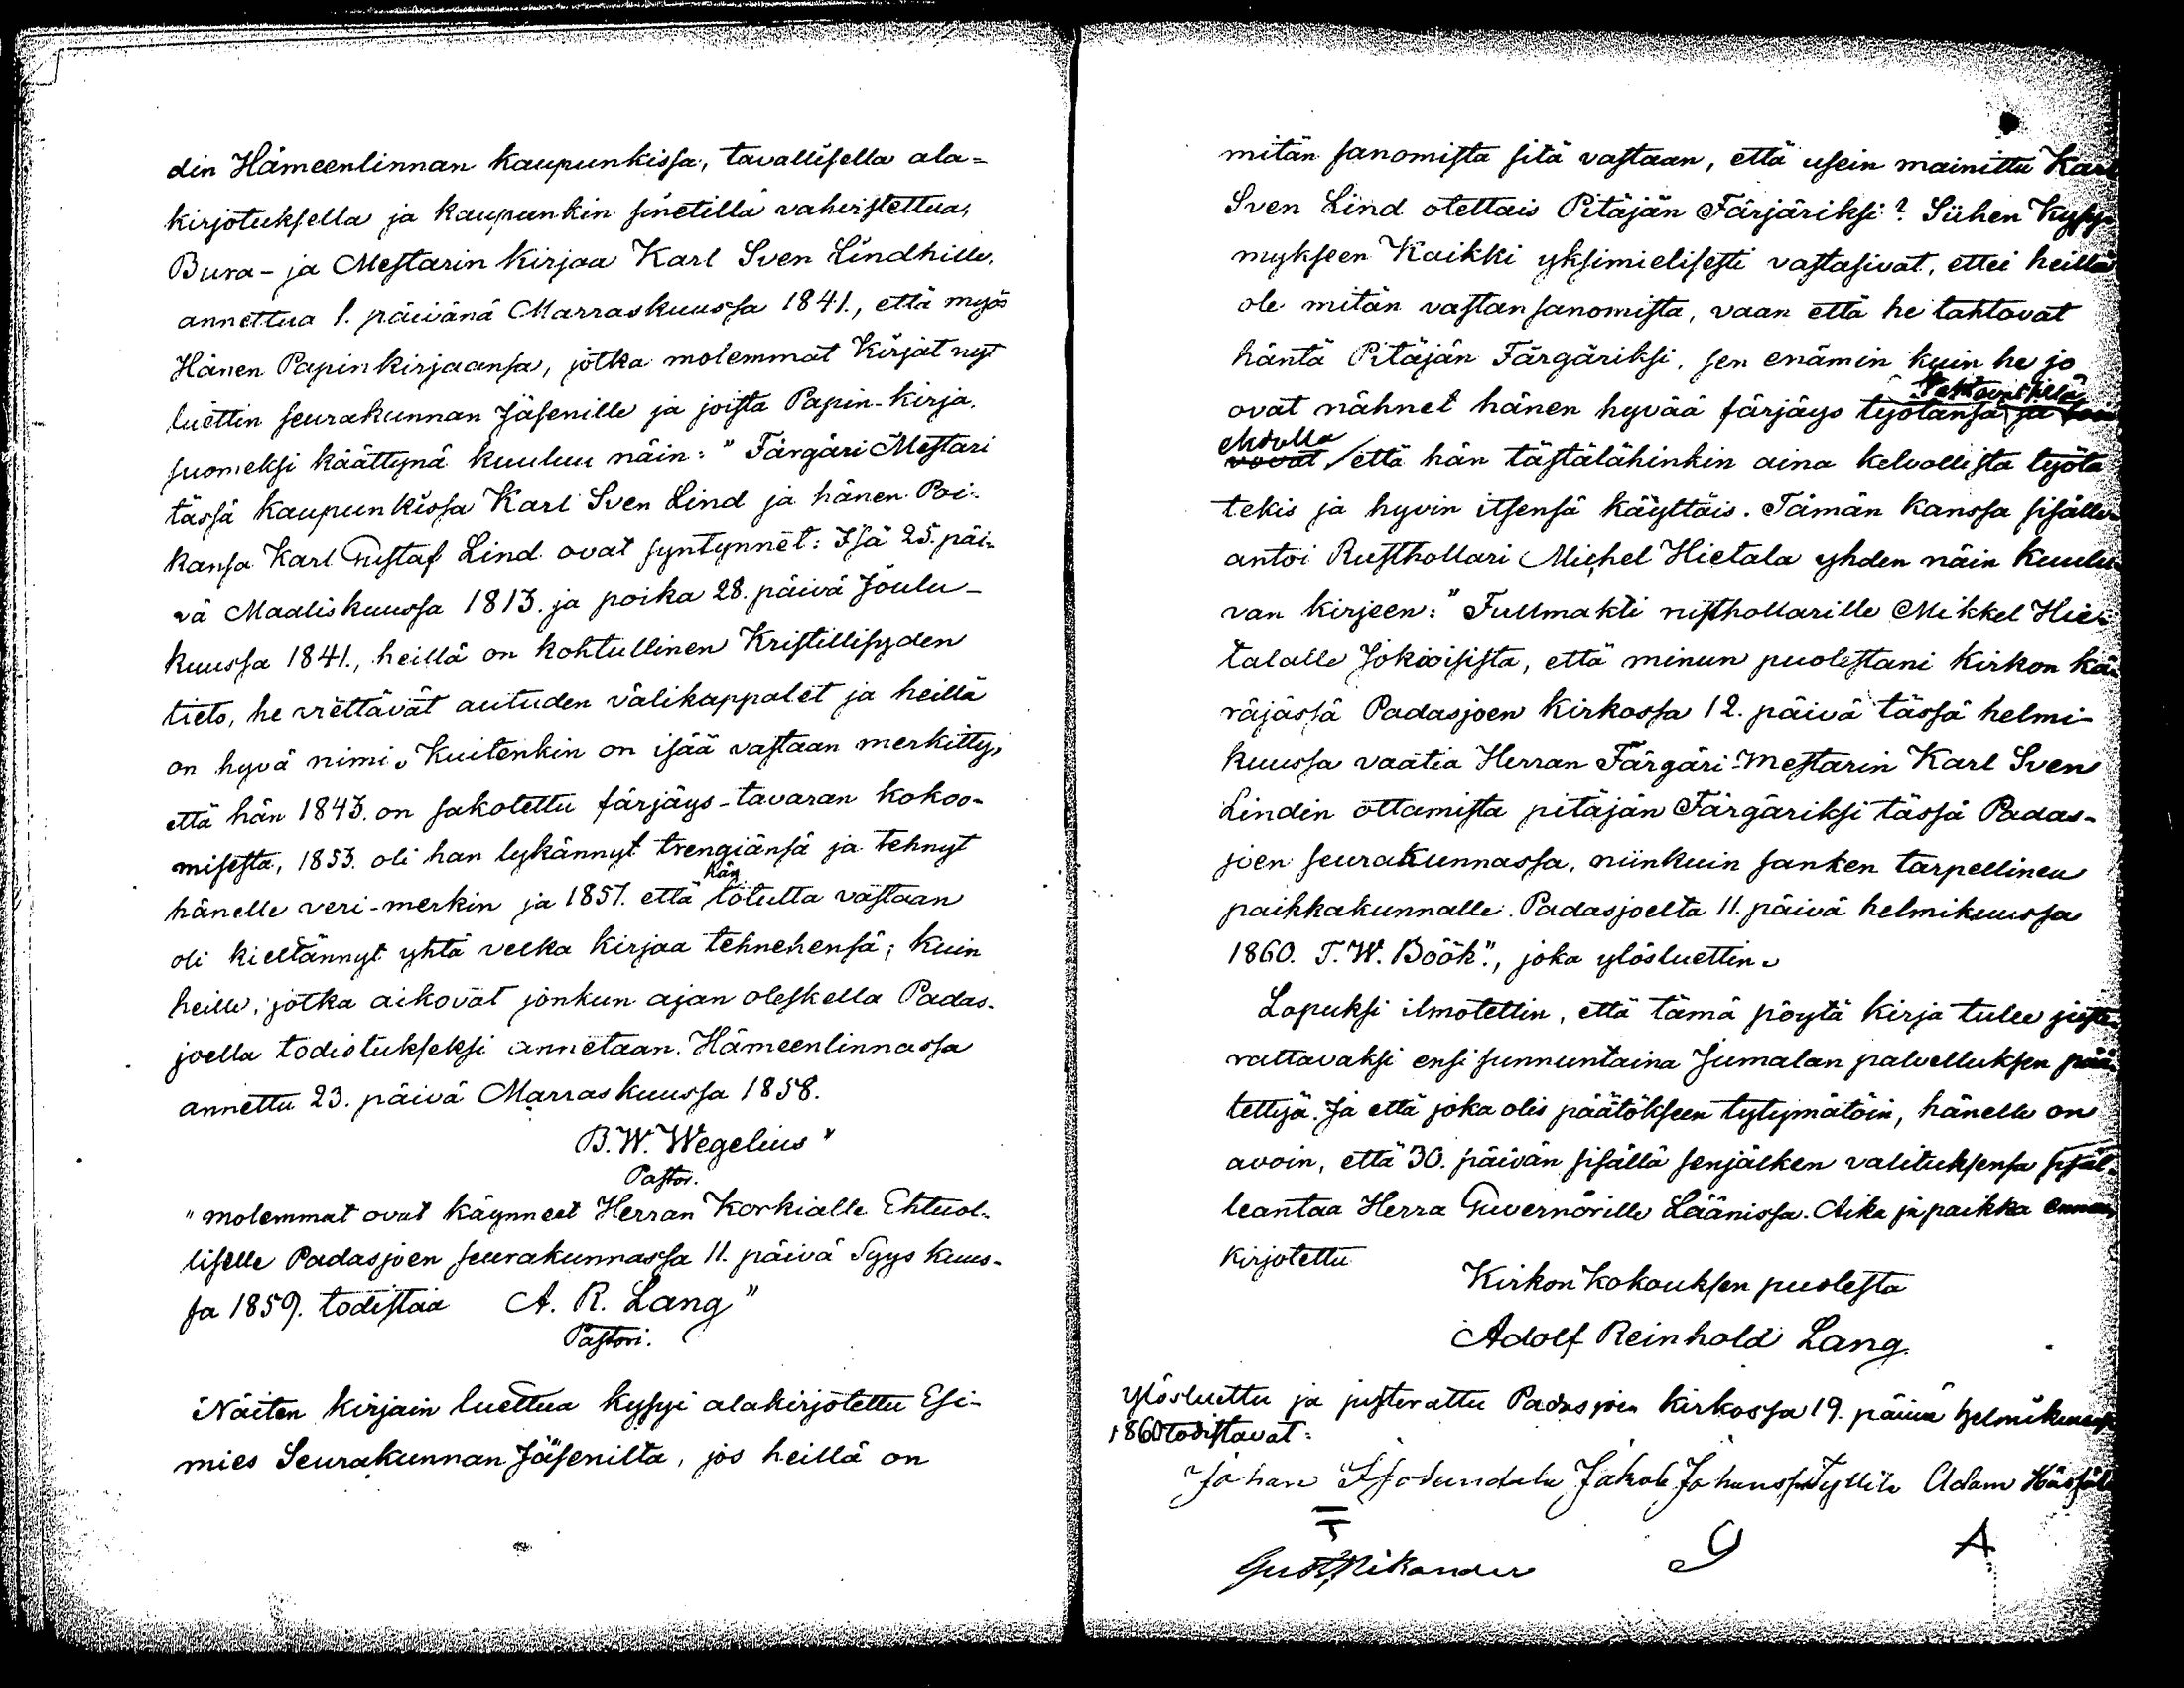 din Hämeenlinnan kaupunkissa, tavallisella ala-
kirjotuksella ja kaupunkin sinetillä vahvistettua,
Bura- ja Mestarin kirjaa Karl Sven Lindhille,
annettua 1. päivänä Marraskuussa 1841., että myös
Hänen Papinkirjaansa, jotka molemmat Kirjat nyt
luettin seurakunnan Jäsenille ja joista Papin-kirja,
suomeksi käättynä kuuluu näin: "Färgäri Mestari
tässä kaupunkissa Karl Sven Lind ja hänen Poi-
kansa Karl Gustaf Lind ovat syntynnet: Isä 25. päi-
vä Maaliskuussa 1813. ja poika 28. päivä Joulu-
kuussa 1841., heillä on kohtullinen Kristillisyden
tieto, he viettävät autuden välikappalet ja heillä
on hyvä nimi. Kuitenkin on isää vastaan merkitty,
että hän 1843. on sakotettu färjäys-tavaran kokoo-
misesta, 1853. oli han lykännyt trengiänsä ja tehnyt
hänelle veri-merkin ja 1857. että hän totutta vastaan
oli kieltännyt yhtä velka kirjaa tehnehensä; kuin
heille, jotka aikovat jonkun ajan oleskella Padas-
joella todistukseksi annetaan. Hämeenlinnassa
annettu 23. päivä Marraskuussa 1858.
B. W. Wegelius"
Pastor.
"molemmat ovat käynneet Herran Korkialle Ehtuol-
liselle Padasjoen seurakunnassa 11. päivä Syys kuus-
sa 1859. todistaa A. R. Lang"
Pastori.
Näiten kirjain luettua kysyi alakirjotettu Esi-
mies Seurakunnan Jäsenilta, jos heillä on
mitän sanomista sitä vastaan, että usein mainittu Karl
Sven Lind otettais Pitäjän Färjäriksi? Siihen Kysy-
mykseen Kaikki yksimielisesti vastasivat, ettei heillä
ole mitän vastansanomista, vaan että he tahtovat
häntä Pitäjän Färgäriksi, sen enämin kuin he jo
ovat nähnet hänen hyvää färjäys työtänsä ja
ehdolla että hän tästälähinkin aina kelvollista työtä
tekis ja hyvin itsensä käyttäis. Tämän kanssa sisälle
antoi Rusthollari Michel Hietala yhden näin kuulu-
van kirjeen: "Fullmakti rusthollarille Mikkel Hie-
talalle Jokioisista, että minun puolestani kirkon kä-
räjässä Padasjoen kirkossa 12. päivä tässä helmi-
kuussa vaatia Herran Färgäri-Mestarin Karl Sven
Lindin ottamista pitäjän Färgäriksi tässä Padas-
joen seurakunnassa, niinkuin sanken tarpellinen
paikkakunnalle. Padasjoelta 11. päivä helmikuussa
1860. T. W. Böök", joka ylösluettin.
Lopuksi ilmotettin, että tämä pöytä kirja tulee juste-
rattavaksi ensi sunnuntaina Jumalan palvelluksen pää-
tettyä. Ja että joka olis päätökseen tytymätöin, hänelle on
avoin, että 30. päivän sisällä senjälken valituksensa sisäl-
leantaa Herra Guvernörille Läänissa. Aika ja paikka ennen
kirjotettu
Kirkon Kokouksen puolesta
Adolf Reinhold Lang.
Ylösluettu ja justerattu Padasjoen kirkossa 19. päivä helmikuussa
1860 todistavat:
Johan Jakob Johansson Tyllilä Adam
Gust Nikander
A